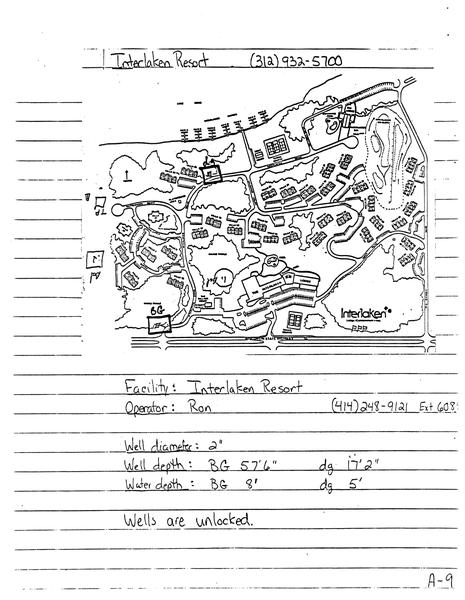 Interlaken Resort (312) 932-5700
BG
Interlaken
Facility: Interlaken Resort
Operator: Ron (414) 248-9121 Ext 608
Well diameter: 2"
Well depth: BG 57'6" dg 17'2"
Water depth: BG 8' dg 5'
Wells are unlocked.
A-9